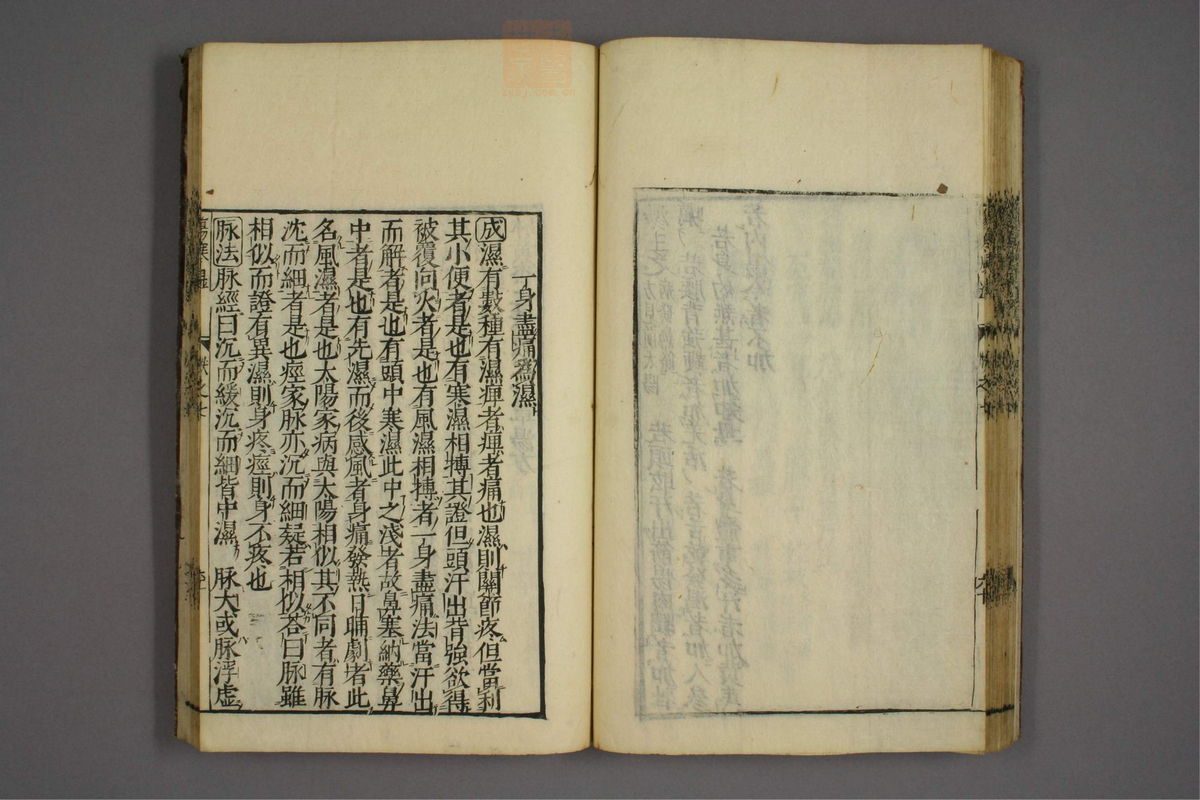 一身盡痛爲濕
成濕有數種有濕痺者痺者痛也濕則關節疼但當利
其小便者是也有寒濕相搏其證但頭汗出背強欲得
被覆向火者是也有風濕相摶者一身盡痛法當汗出
而解者是也有頭中寒濕此中之淺者故鼻塞納藥鼻
中者是也有先濕而後感風者身痛發熱日晡劇者此
名風濕者是也太陽家病與太陽相似其不同者有脉
沈而細者是也痙家脉亦沉而細疑若相似答曰脉雖
相似而證有異濕則身疼痙則身不疼也
脉法脉經曰沉而緩沉而細皆中濕 脉大或脉浮虛